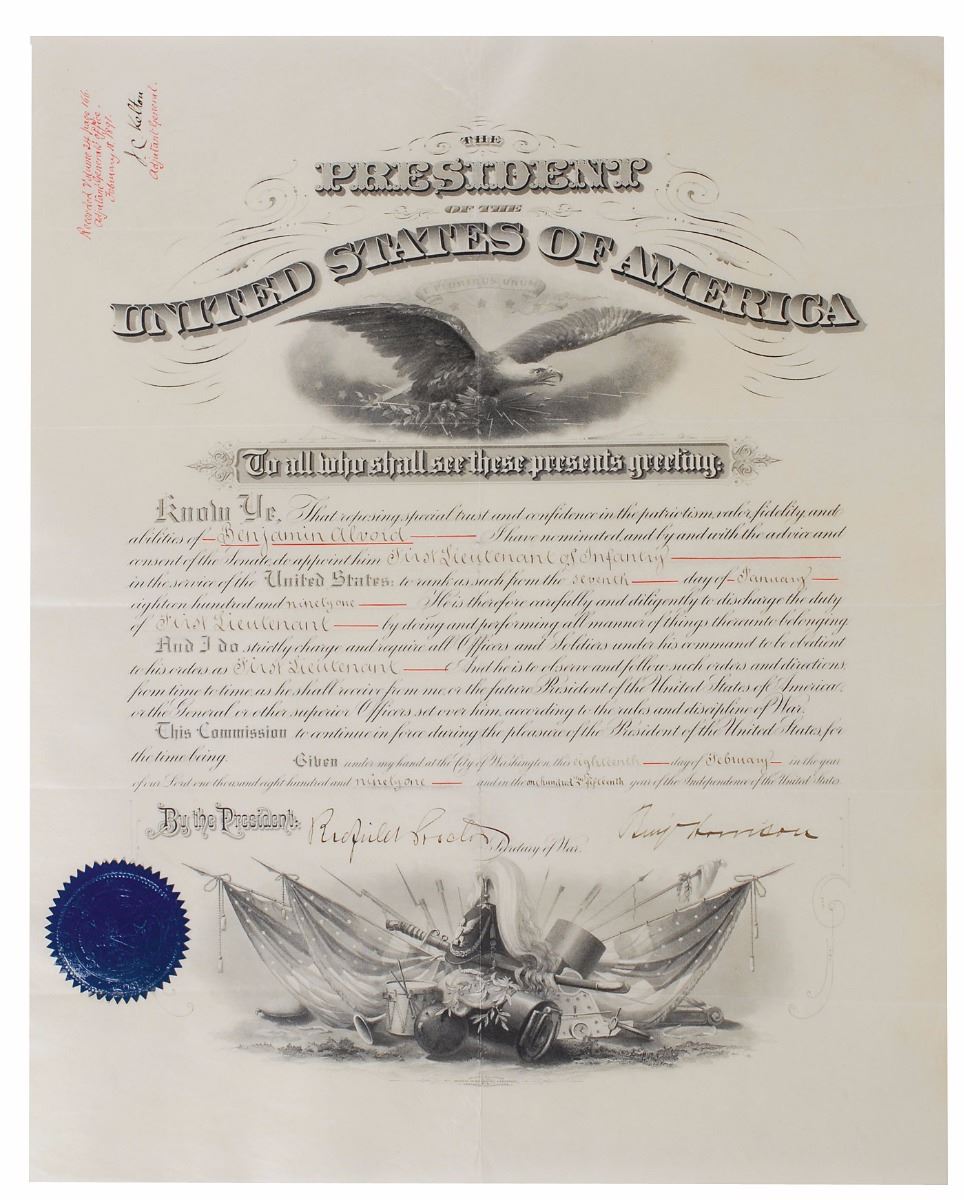 Recorded Volume 24 page 166
Adjutant General's Office.
February 18, 1891.
J. C. Kelton
Adjutant General.
THE
PRESIDENT
OF THE
UNITED STATES OF AMERICA
E PLURIBUS UNUM
To all who shall see these presents greeting:
Know Ye, That reposing special trust and confidence in the patriotism, valor, fidelity and
abilities of Benjamin Alvord I have nominated and by and with the advice and
consent of the Senate, do appoint him First Lieutenant of Infantry
in the service of the United States: to rank as such from the seventh day of January
eighteen hundred and ninety one He is therefore carefully and diligently to discharge the duty
of First Lieutenant by doing and performing all manner of things thereunto belonging.
And I do strictly charge and require all Officers and Soldiers under his command to be obedient
to his orders as First Lieutenant And he is to observe and follow such orders and directions,
from time to time, as he shall receive from me, or the future President of the United States of America,
or the General or other superior Officers set over him, according to the rules and discipline of War.
This Commission to continue in force during the pleasure of the President of the United States, for
the time being. Given under my hand at the City of Washington, this eighteenth day of February in the year
of our Lord one thousand eight hundred and ninety one and in the one hundred & fifteenth year of the Independence of the United States.
By the President: Redfield Proctor Benj Harrison
Secretary of War.